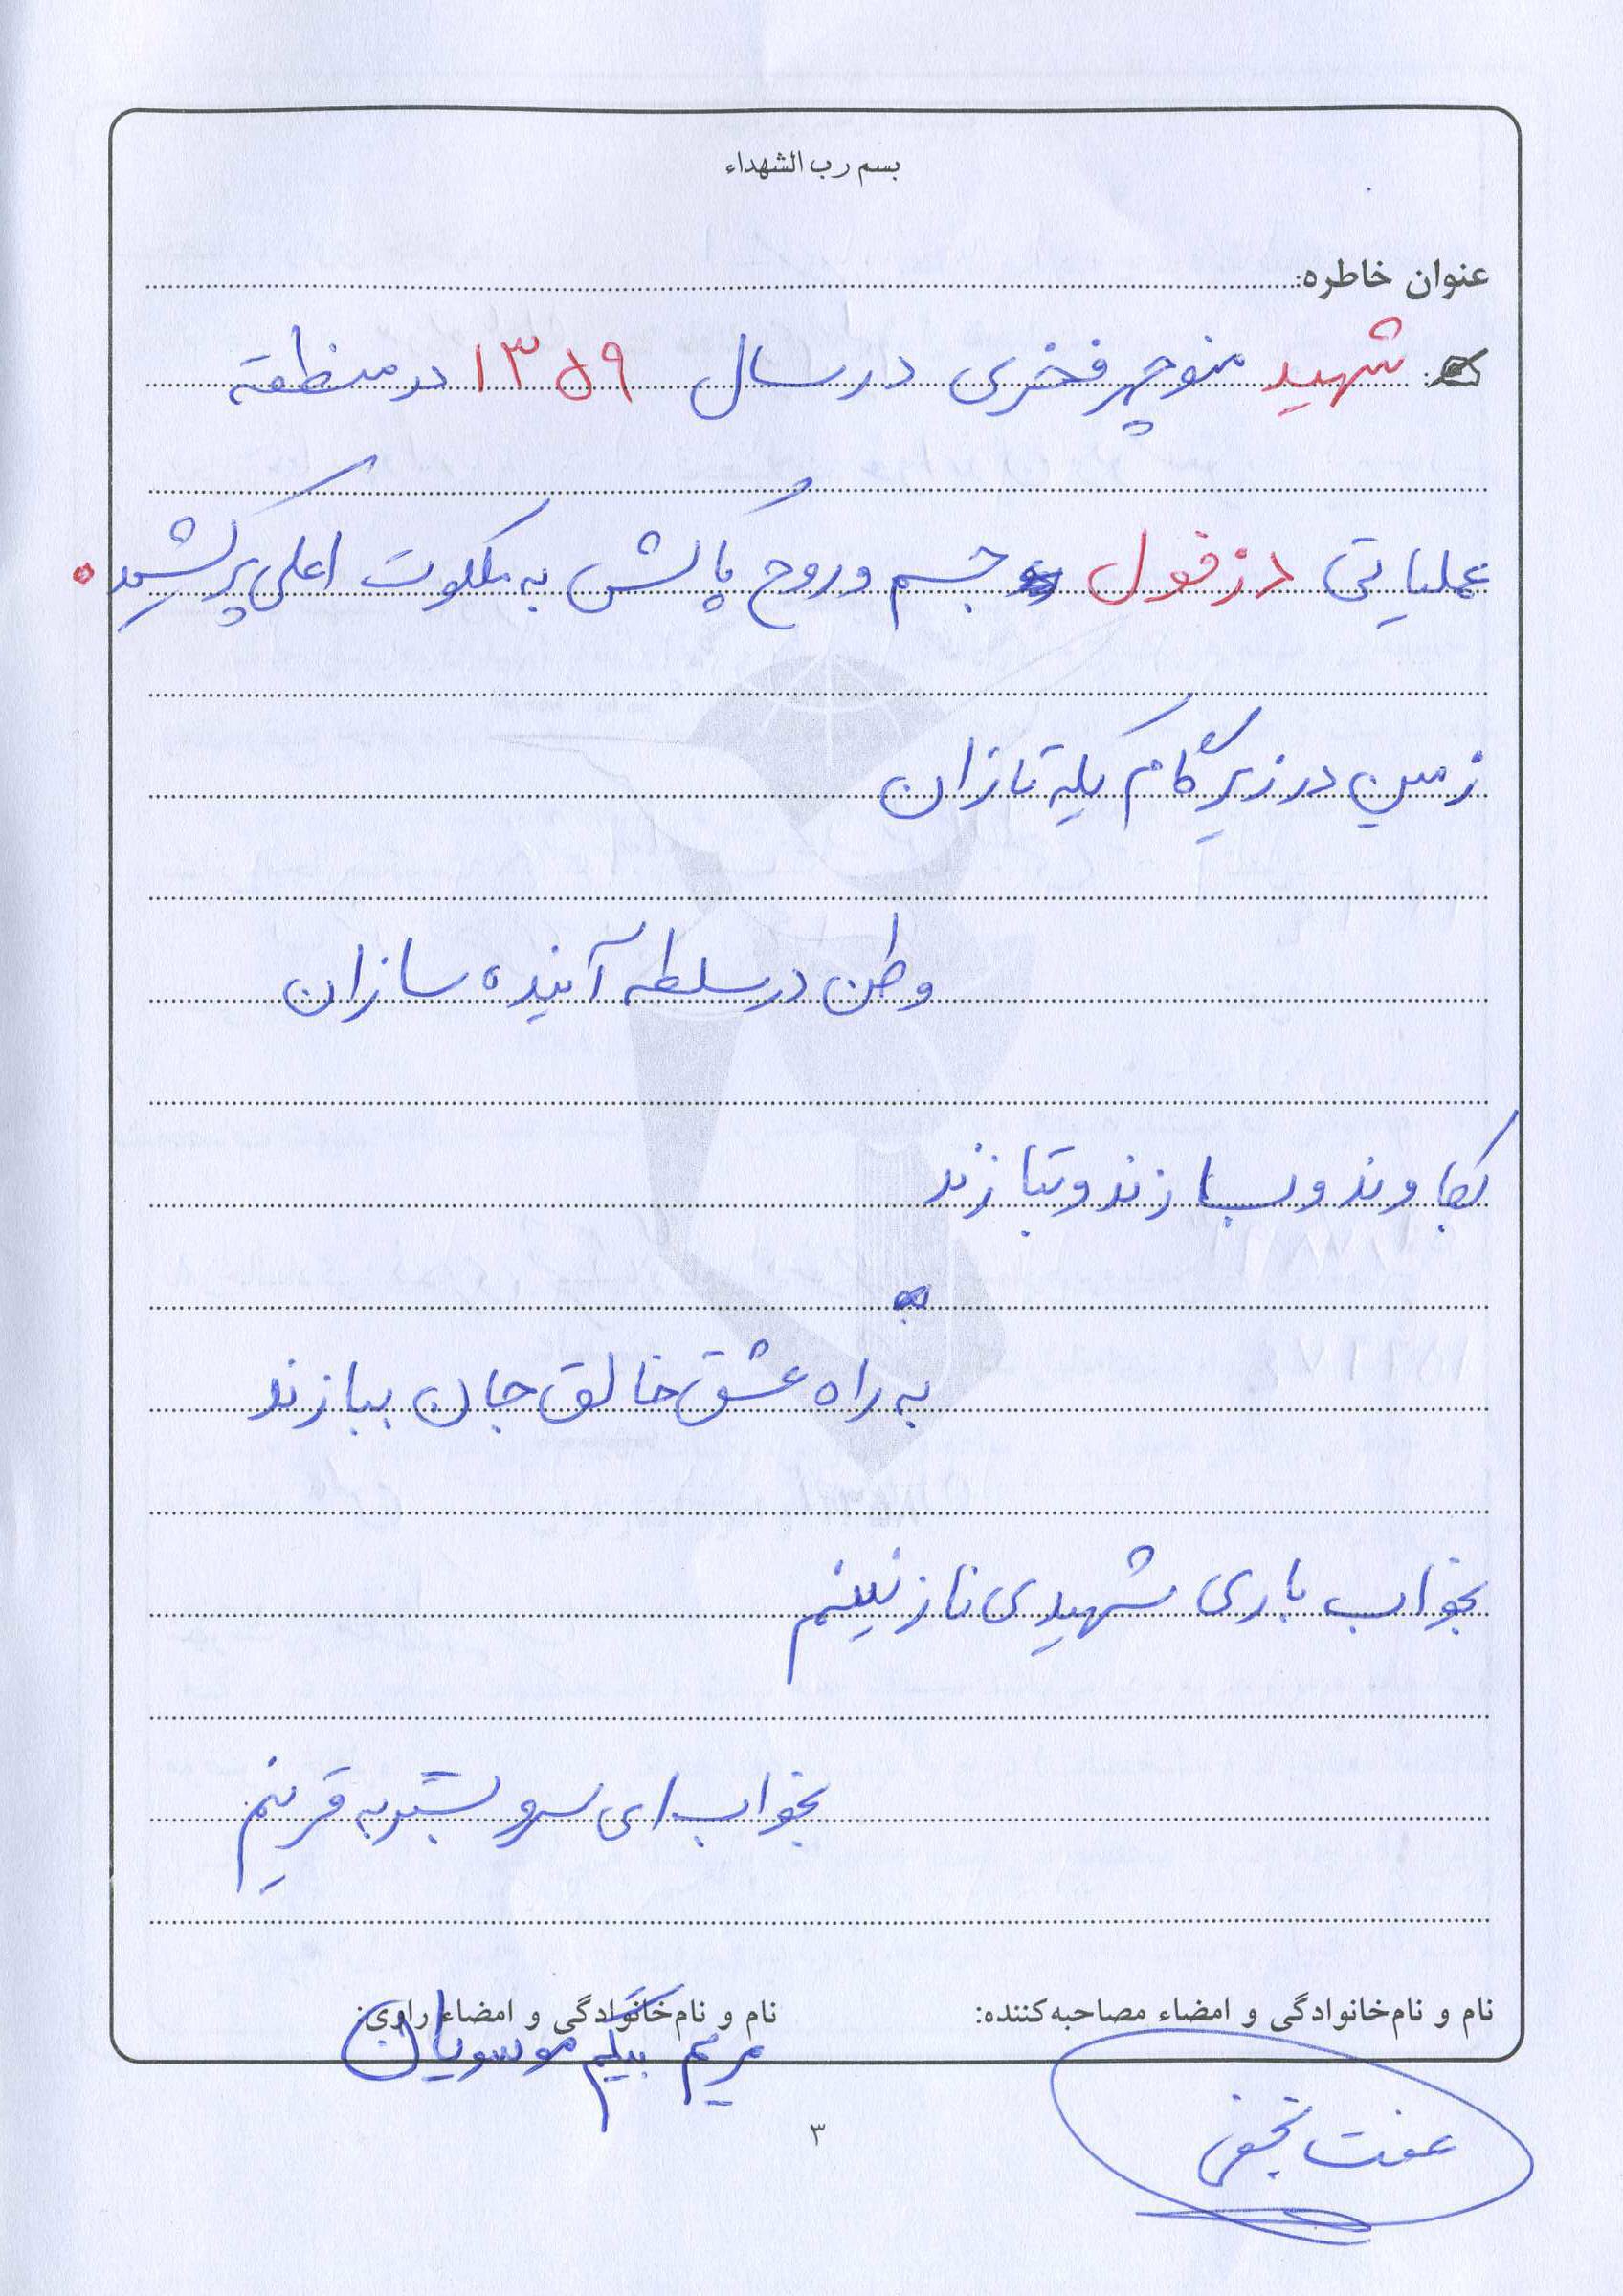 بسم رب الشهداء
عنوان خاطره:
شهید منوچهر فخری در سال ۱۳۵۹ در منطقه
عملیاتی دزفول جسم و روح پاکش به ملکوت اعلی پر کشید.
زمین در زیر گام یکه تازان
وطن در سلطه آینده سازان
بکاوند و بسازند و بتازند
به راه عشق خالق جان ببازند
بخواب باری شهیدی نازنینم
بخواب ای سرو
قرینم
نام و نام‌خانوادگی و امضاء مصاحبه‌کننده:
نام و نام‌خانوادگی و امضاء راوی:
مریم بیگم موسویان
عفت نجفی
۳